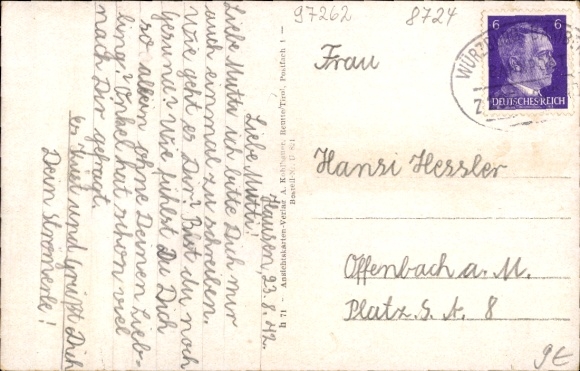 97262
8724
Hausen, 23.8.42.
Liebe Mutti!
Liebe Mutti ich bitte Dich mir
auch einmal zu schreiben.
Wie geht es Dir? Bist du noch
gesund? Wie fühlst Du Dich
so allein ohne Deinen Lieb-
ling? Onkel hat schon viel
nach Dir gefragt.
es küsst und grüßt Dich
Dein Stromerle!
h 71 - Ansichtskarten-Verlag A. Reutte/Tirol, Postfach 1 -
6 6
DEUTSCHES REICH
WÜRZBURG
Frau
Hansi Hessler
Offenbach a. M.
Platz. S. A. 8
9€